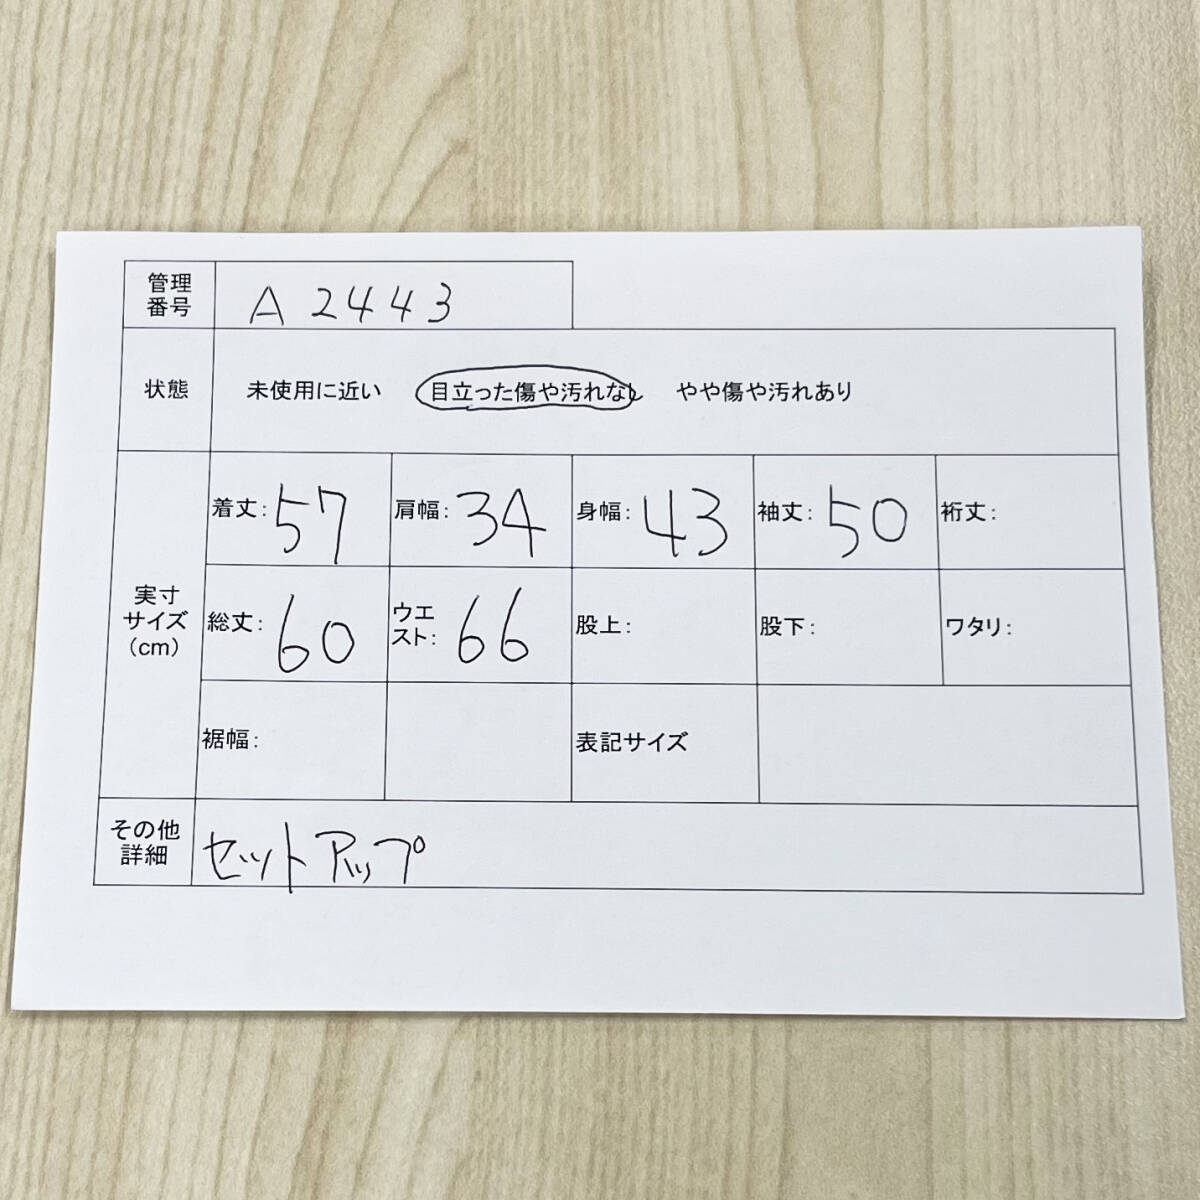 管理
番号
A2443
状態
未使用に近い 目立った傷や汚れなし やや傷や汚れあり
実寸
サイズ
（cm）
着丈：57 肩幅：34 身幅：43 袖丈：50 裄丈：
総丈：60 ウエ
スト：66 股上： 股下： ワタリ：
裾幅： 表記サイズ
その他
詳細
セットアップ